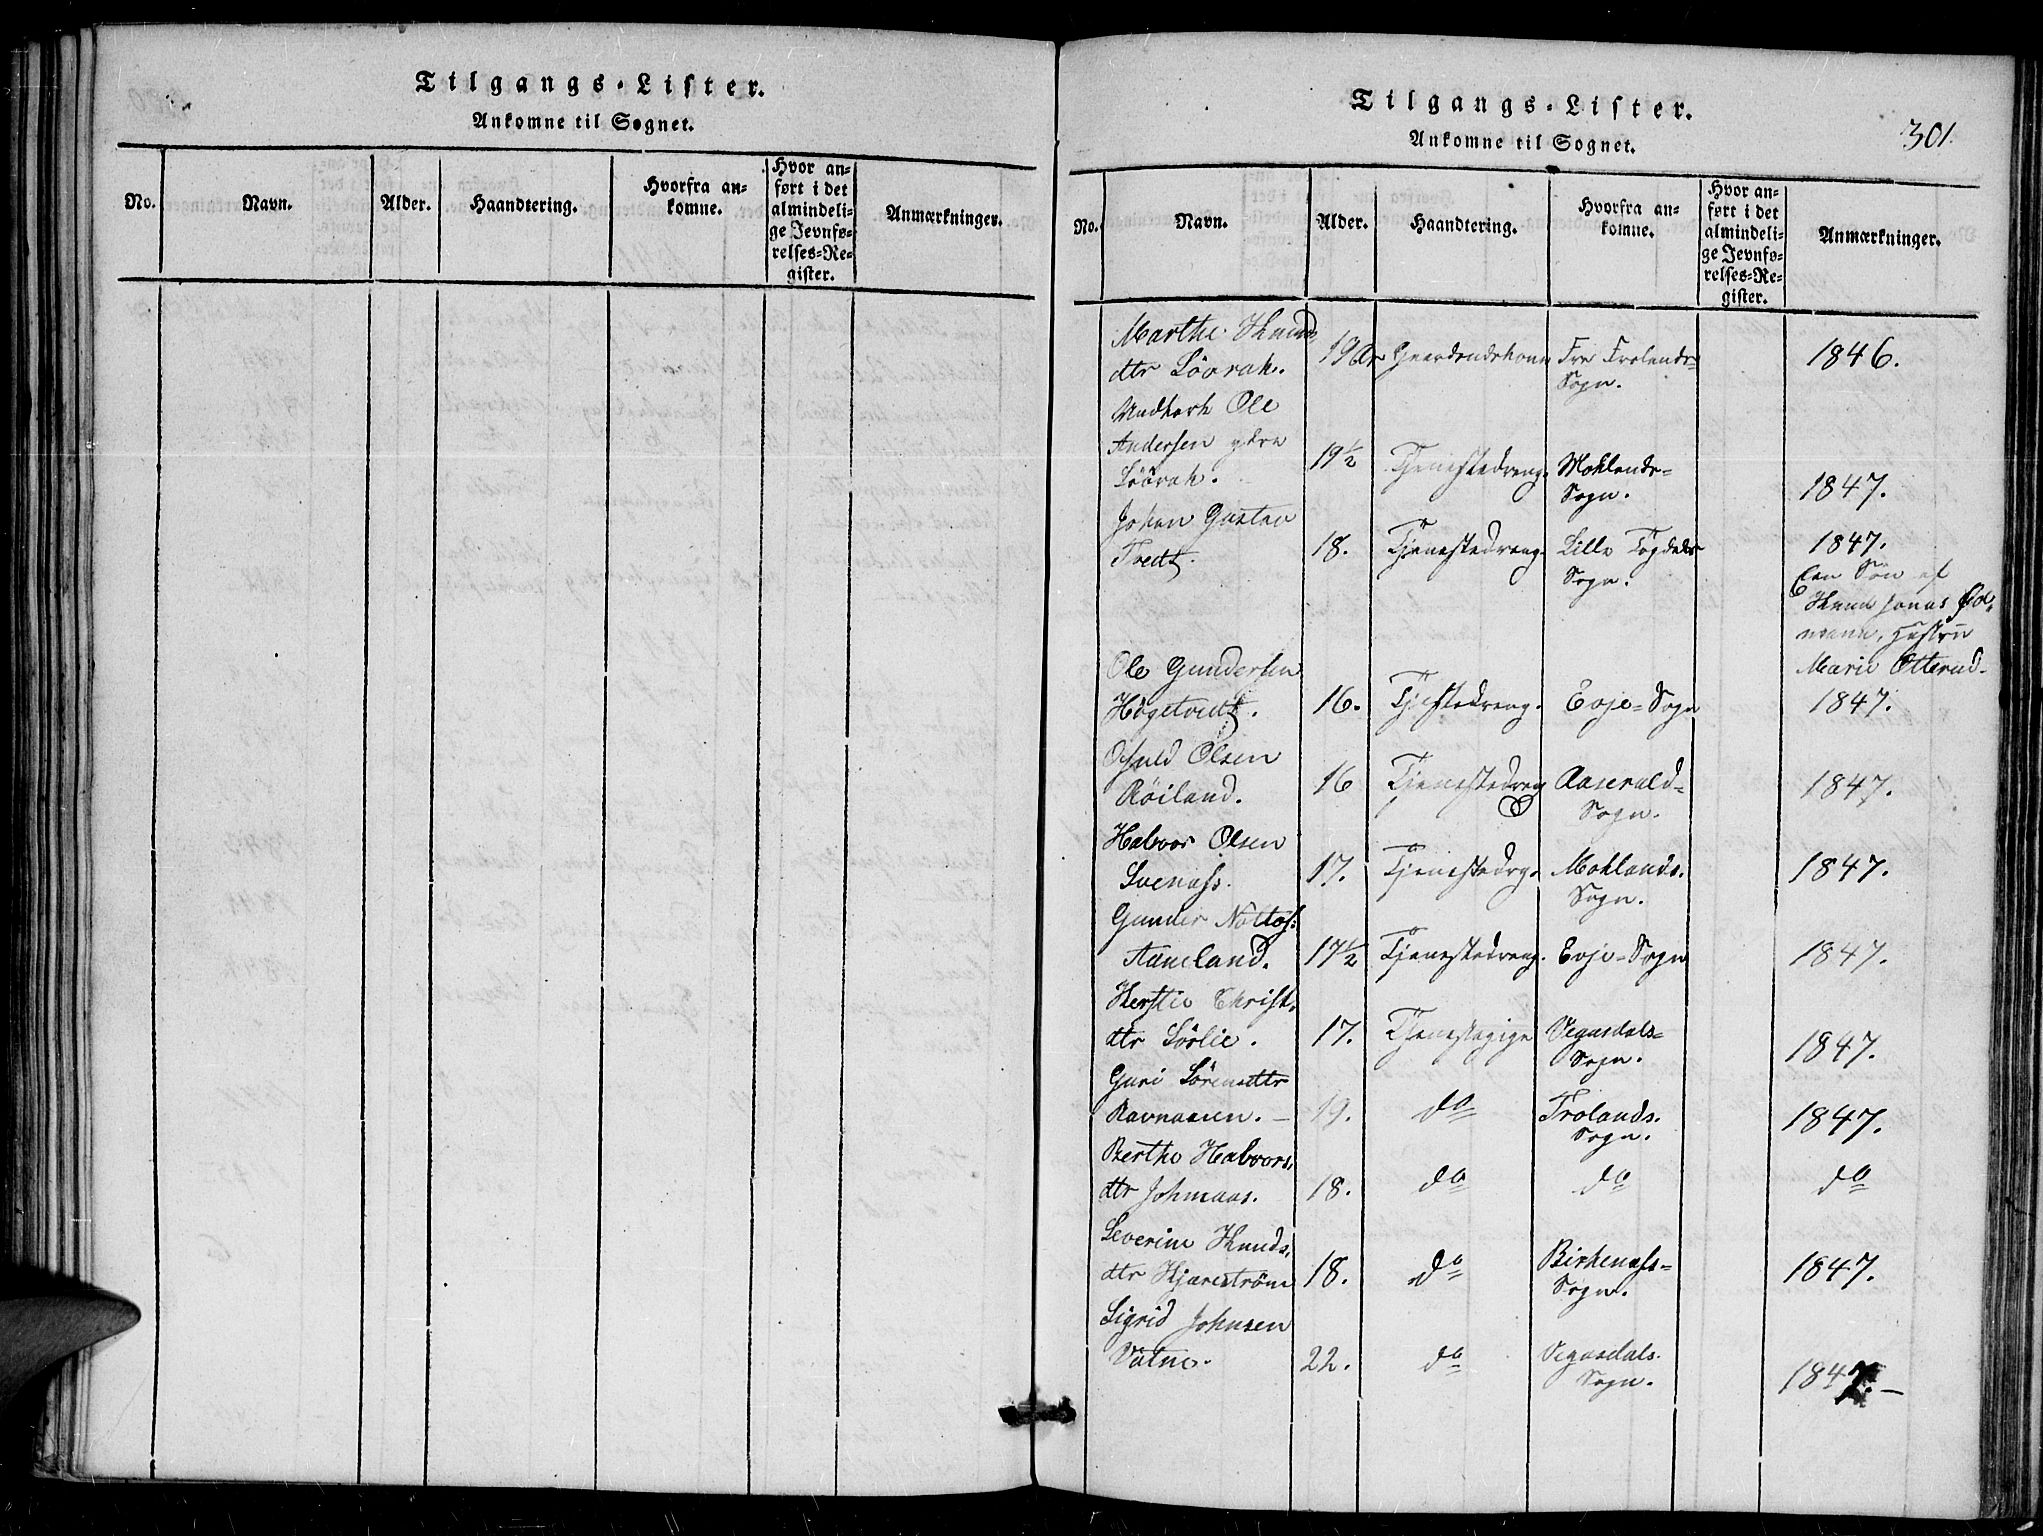 Tilgangs-Lister.
Ankomne til Sognet.
No.
Navn.
Alder.
Haandtering.
Hvorfra an-
komne.
Hvor an-
ført i det
almindeli-
ge Jevnfø-
relses-Re-
gister.
Anmærkninger.
Tilgangs-Lister.
Ankomne til Sognet.
301.
No.
Navn.
Alder.
Haandtering.
Hvorfra an-
komne.
Hvor an-
ført i det
almindeli-
ge Jevnfø-
relses-Re-
gister.
Anmærkninger.
Marthe Knuds
dtr Lövrak. 19 Fra Frolands- 1846.
Sogn.
Ole
Andersen ydre
Löbrak. 19½ Tjenestedreng. Moklands- 1847.
Sogn.
Johan Gustav
Tvedt. 18. Tjenestedreng. Lille Topdals 1847.
Sogn. Een Sön af
Knud Jonas
Hustru
Marie Otterud.
Ole Gundersen
Högetvedt. 16. Tjestedreng. Evje-Sogn 1847.
Osuld Olsen
Röiland. 16 Tjenestedreng Aaserald- 1847.
Sogn.
Halvor Olsen
Svenass. 17. Tjenestedrg. Moklands. 1847.
Sogn.
Gunder Noltos:
Aaneland. 17½ Tjenestedreng. Evje-Sogn 1847.
Kerstie Christ.
dtr Sörlie. 17. Tjenestepige Vegusdals- 1847.
Sogn.
Guri Sörensdtr
Ravnaasen. – 19. do Frolands. 1847.
Sogn.
Berthe Halvors.
dtr Johmaas. 18. do do do
Severine Knuds.
dtr Kjareström 18. do Birkenass- 1847.
Sogn.
Sigrid Johnsen
Vatne. 22. do Vegusdals. 1847.–
Sogn.